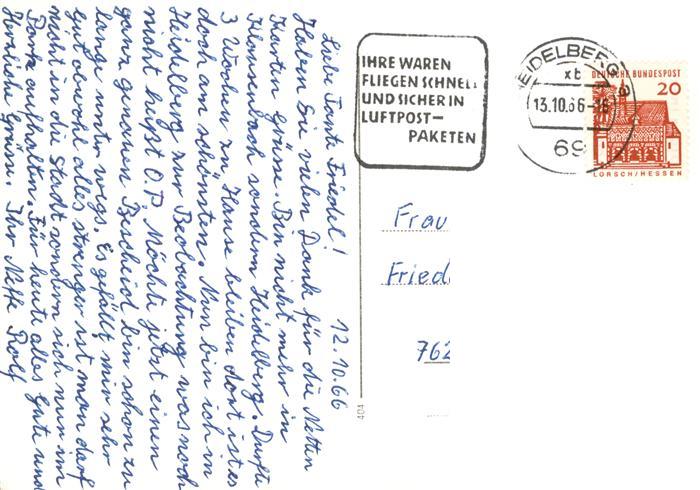 12.10.66
Liebe Tante Friedel!
Haben Sie vielen Dank für die Netten
Karten Grüsse. Bin nicht mehr in
sondern Heidelberg. Durfte
3 Wochen zu Hause bleiben dort ist es
doch am schönsten. Nun bin ich in
Heidelberg zur Beobachtung was noch
nicht heist O.P. Möchte jetzt einen
ganz genauen Bescheid bin schon zu
lange unter wegs. Es gefällt mir sehr
gut obwohl alles strenger ist man darf
nicht in die Stadt sondern sich nur im
Park aufhalten. Für heute alles Gute und
Herzliche Grüsse. Ihr Neffe Rolf
404
IHRE WAREN
FLIEGEN SCHNELL
UND SICHER IN
LUFTPOST-
PAKETEN
HEIDELBERG
xb
13.10.66-18
69
DEUTSCHE BUNDESPOST
20
LORSCH/HESSEN
Frau
Fried
762